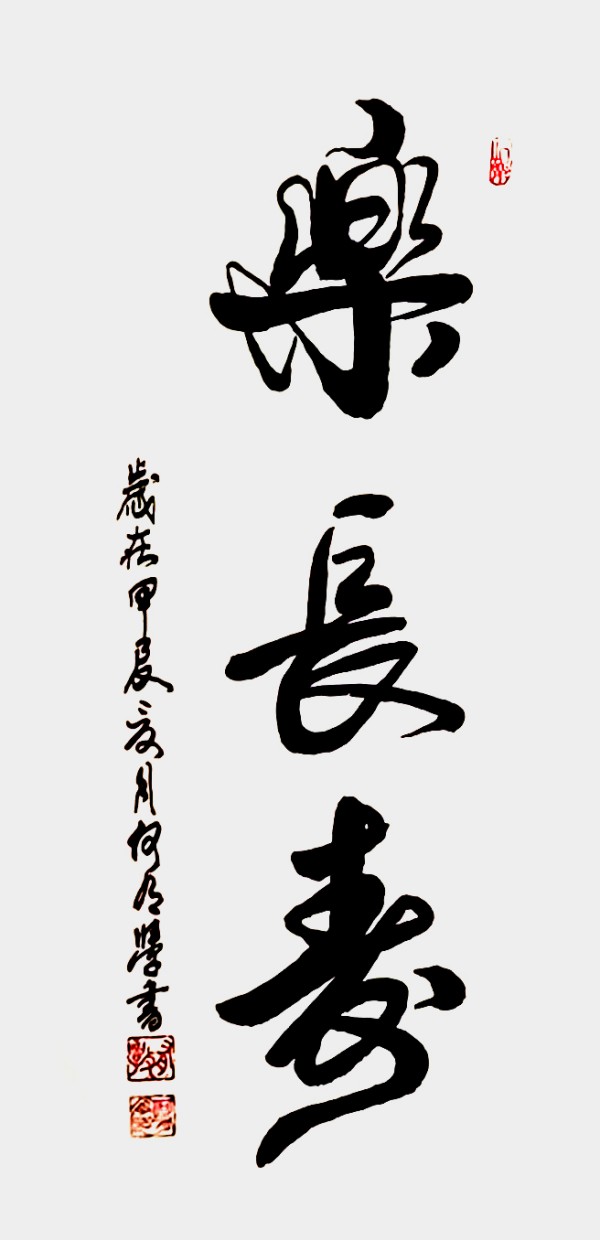 樂長壽
歲在甲辰夏月何學書